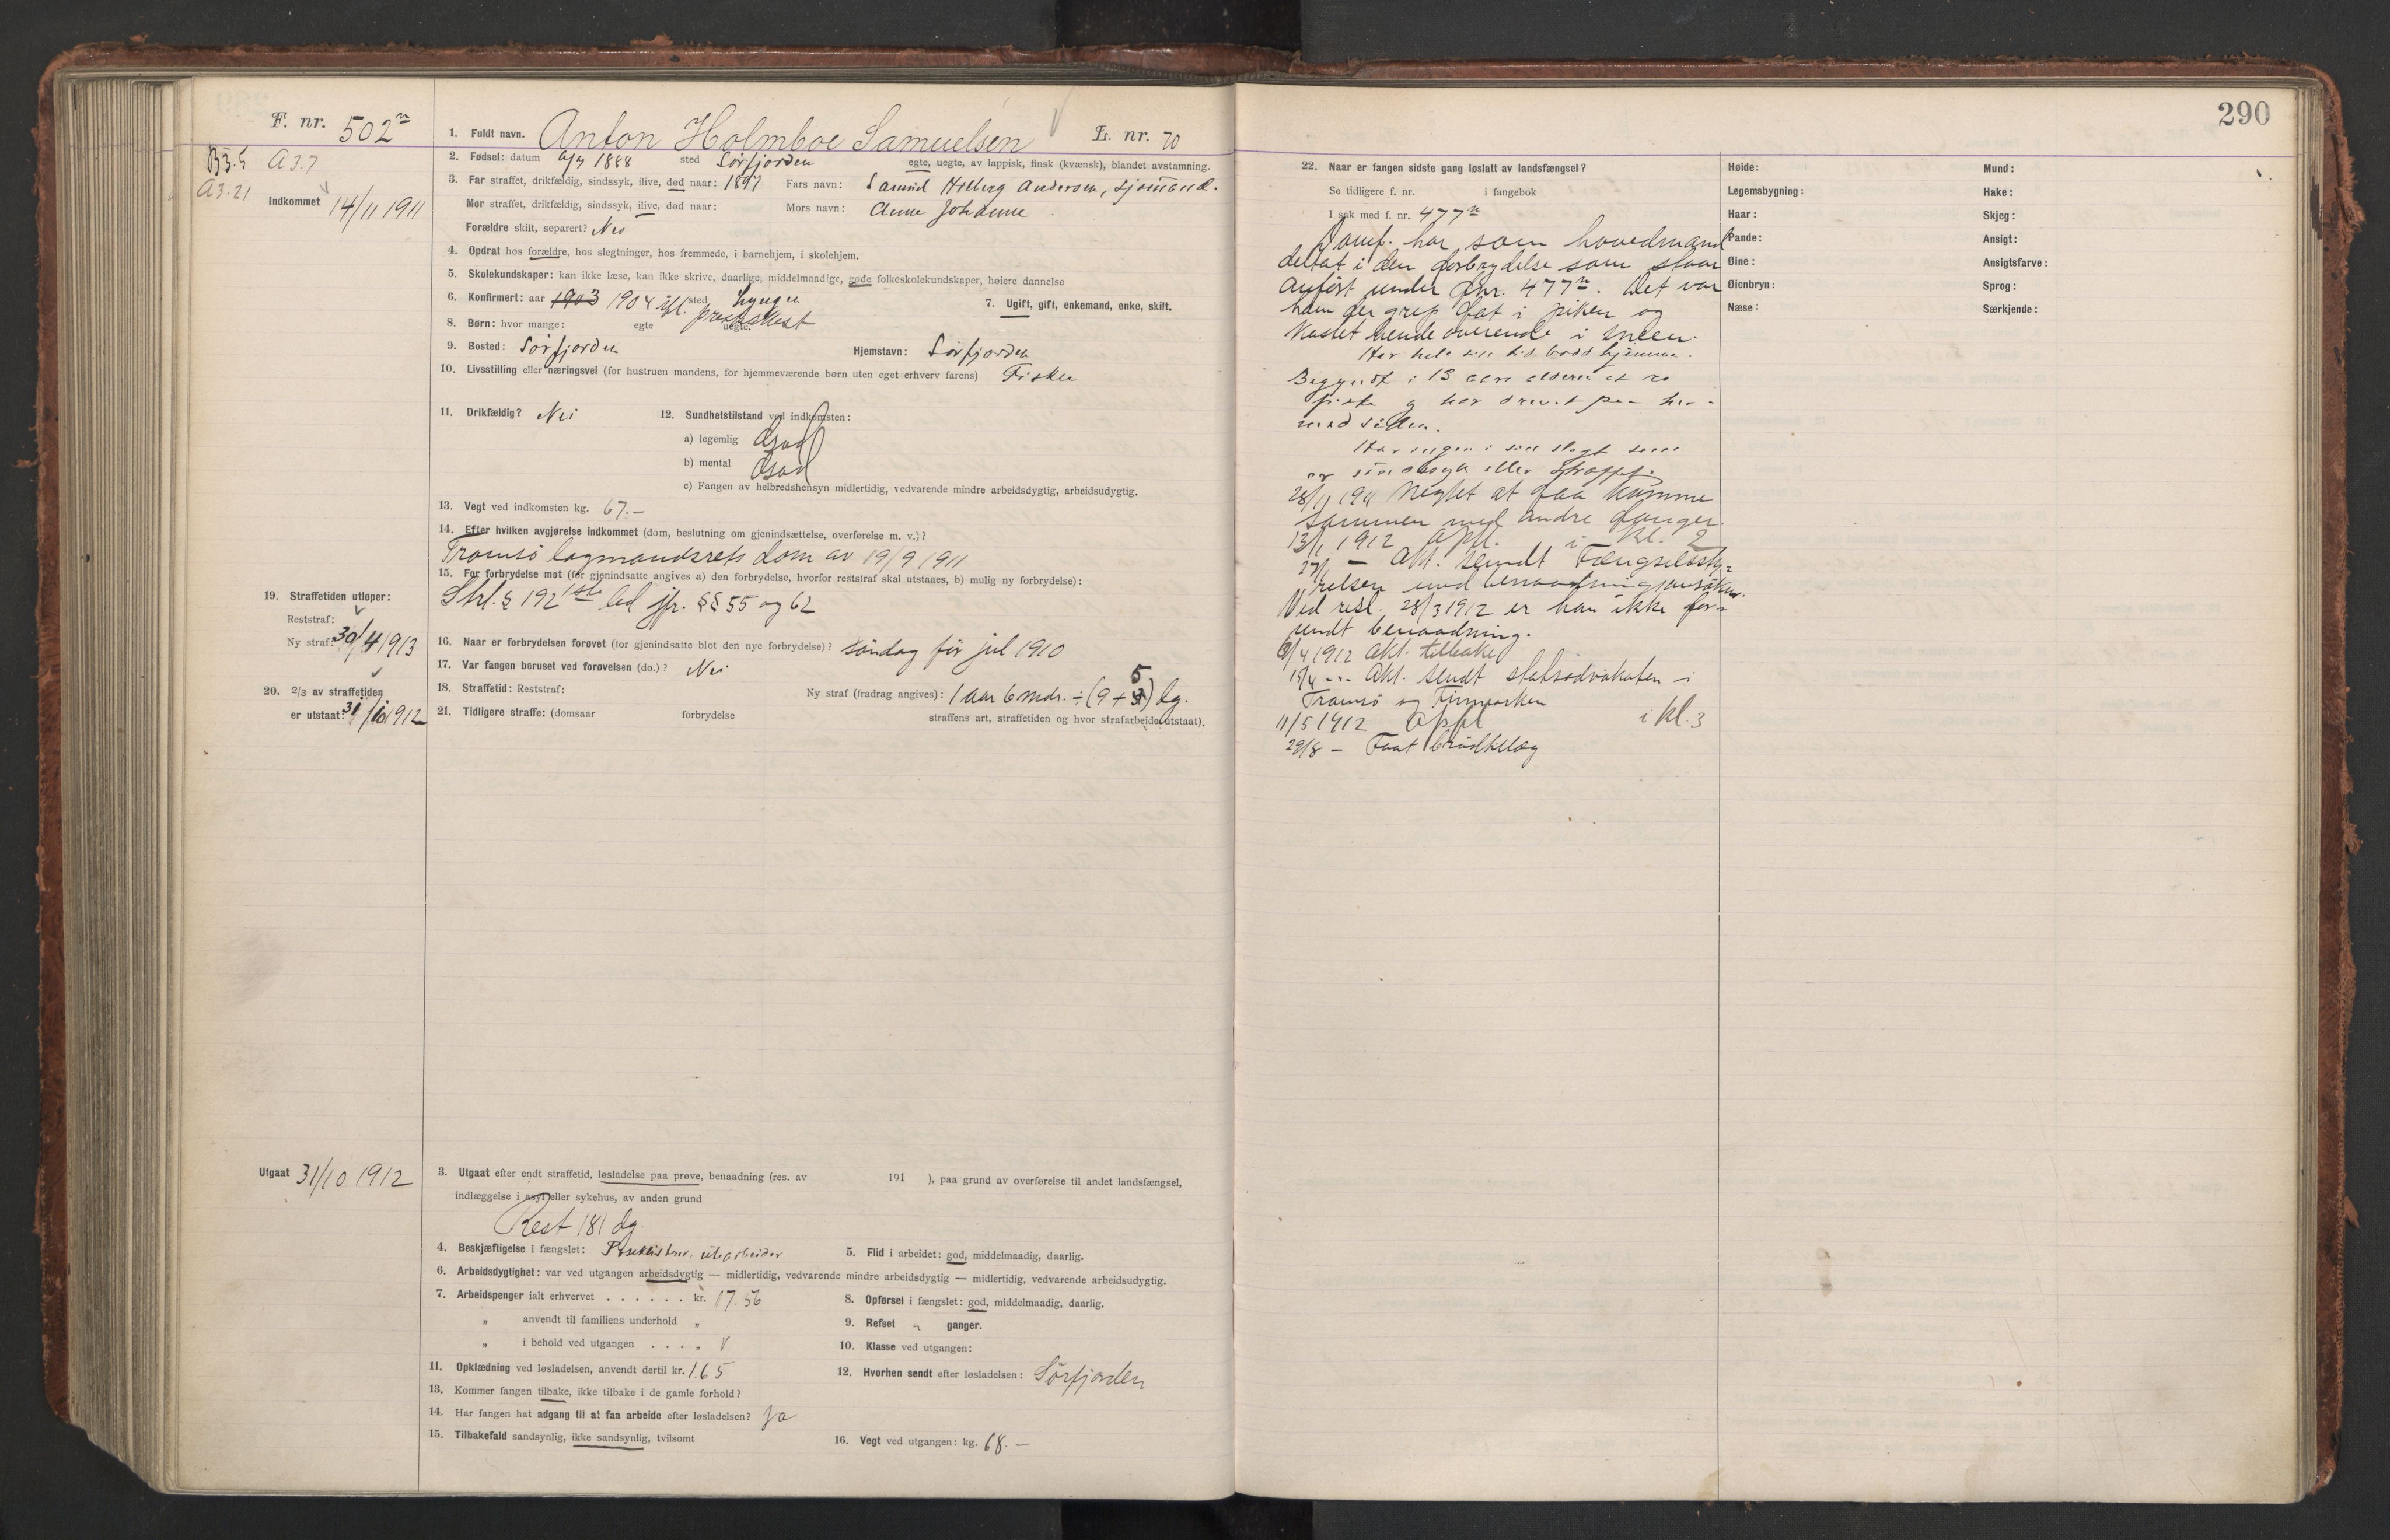 290
F. nr. 502n
B3.5 A 3.7
A3.21
Indkommet 14/11 1911
1. Fuldt navn. Anton Holmboe Samuelsen L. nr. 70
2. Fødsel: datum 1888 sted Sørfjorden egte, uegte, av lappisk, finsk (kvænsk), blandet avstamning.
3. Far straffet, drikfældig, sindssyk, ilive, død naar: 1897 Fars navn: Samuel Andersen, sjømand.
Mor straffet, drikfældig, sindssyk, ilive, død naar: Mors navn: Anne Johanne
Forældre skilt, separert? Nei
4. Opdrat hos forældre, hos slegtninger, hos fremmede, i barnehjem, i skolehjem.
5. Skolekundskaper: kan ikke læse, kan ikke skrive, daarlige, middelmaadige, gode folkeskolekundskaper, høiere dannelse
6. Konfirmert: aar 1903 1904 sted Lyngen
7. Ugift, gift, enkemand, enke, skilt.
8. Børn: hvor mange: egte uegte.
9. Bosted: Sørfjorden Hjemstavn: Sørfjorden
10. Livsstilling eller næringsvei (for hustruen mandens, for hjemmeværende børn uten eget erhverv farens) Fisker
11. Drikfældig? Nei 12. Sundhetstilstand ved indkomsten:
a) legemlig God
b) mental God
c) Fangen av helbredshensyn midlertidig, vedvarende mindre arbeidsdygtig, arbeidsudygtig.
13. Vegt ved indkomsten kg. 67.–
14. Efter hvilken avgjørelse indkommet (dom, beslutning om gjenindsættelse, overførelse m. v.)?
Tromsø lagmandsrets dom av 19/9 1911
15. For forbrydelse mot (for gjenindsatte angives a) den forbrydelse, hvorfor reststraf skal utstaaes, b) mulig ny forbrydelse):
Strl. § 192 1ste led jfr. §§ 55 og 62
19. Straffetiden utløper:
Reststraf:
Ny straf: 30/4 1913
16. Naar er forbrydelsen forøvet (for gjenindsatte blot den nye forbrydelse)? søndag før jul 1910
17. Var fangen beruset ved forøvelsen (do.)? Nei
20. 2/3 av straffetiden
er utstaat: 31/10 1912
18. Straffetid: Reststraf: Ny straf (fradrag angives): 1 aar 6 mdr. ÷ (9 + 5) dg.
21. Tidligere straffe: (domsaar forbrydelse straffens art, straffetiden og hvor strafarbeidet utstaat).
Utgaat 31/10 1912
3. Utgaat efter endt straffetid, løsladelse paa prøve, benaadning (res. av 191 ), paa grund av overførelse til andet landsfængsel,
indlæggelse i asyl eller sykehus, av anden grund
Rest 181 dg.
4. Beskjæftigelse i fængslet: utearbeider 5. Flid i arbeidet: god, middelmaadig, daarlig.
6. Arbeidsdygtighet: var ved utgangen arbeidsdygtig — midlertidig, vedvarende mindre arbeidsdygtig — midlertidig, vedvarende arbeidsudygtig.
7. Arbeidspenger ialt erhvervet . . . . . . kr. 17.56 8. Opførsel i fængslet: god, middelmaadig, daarlig.
„ anvendt til familiens underhold „ 9. Refset ganger.
„ i behold ved utgangen . . . „ 10. Klasse ved utgangen:
11. Opklædning ved løsladelsen, anvendt dertil kr. 1.65 12. Hvorhen sendt efter løsladelsen: Sørfjorden
13. Kommer fangen tilbake, ikke tilbake i de gamle forhold?
14. Har fangen hat adgang til at faa arbeide efter løsladelsen? Ja
15. Tilbakefald sandsynlig, ikke sandsynlig, tvilsomt 16. Vegt ved utgangen: kg. 68.–
22. Naar er fangen sidste gang løslatt av landsfængsel?
Se tidligere f. nr. i fangebok
I sak med f. nr. 477n
Domf. har som hovedmand
deltat i den forbrydelse som staar
anført under fnr. 477n. Det var
ham der grep fat i piken og
kastet hende overende i sneen.
Har hele sin tid bodd hjemme.
Begyndt i 13 aars alderen at ro
fiske og har drevet paa her-
med siden.
Har ingen i sin slegt som
er sindssyk eller straffet.
28/11 1911 Negtet at faa komme
sammen med andre fanger.
13/1 1912 Oppl. i kl. 2
27/1 – Akt. sendt Fængselssty-
relsen med benaadningsansøkn.
Ved resl. 28/3 1912 er han ikke for-
undt benaadning.
/4 1912 Akt. tilbake
15/4 – Akt. sendt statsadvokaten i
Tromsø og Finmarken
11/5 1912 Oppl. i kl. 3
29/8 – Faat
Høide:
Legemsbygning:
Haar:
Pande:
Øine:
Øienbryn:
Næse:
Mund:
Hake:
Skjeg:
Ansigt:
Ansigtsfarve:
Sprog:
Særkjende: